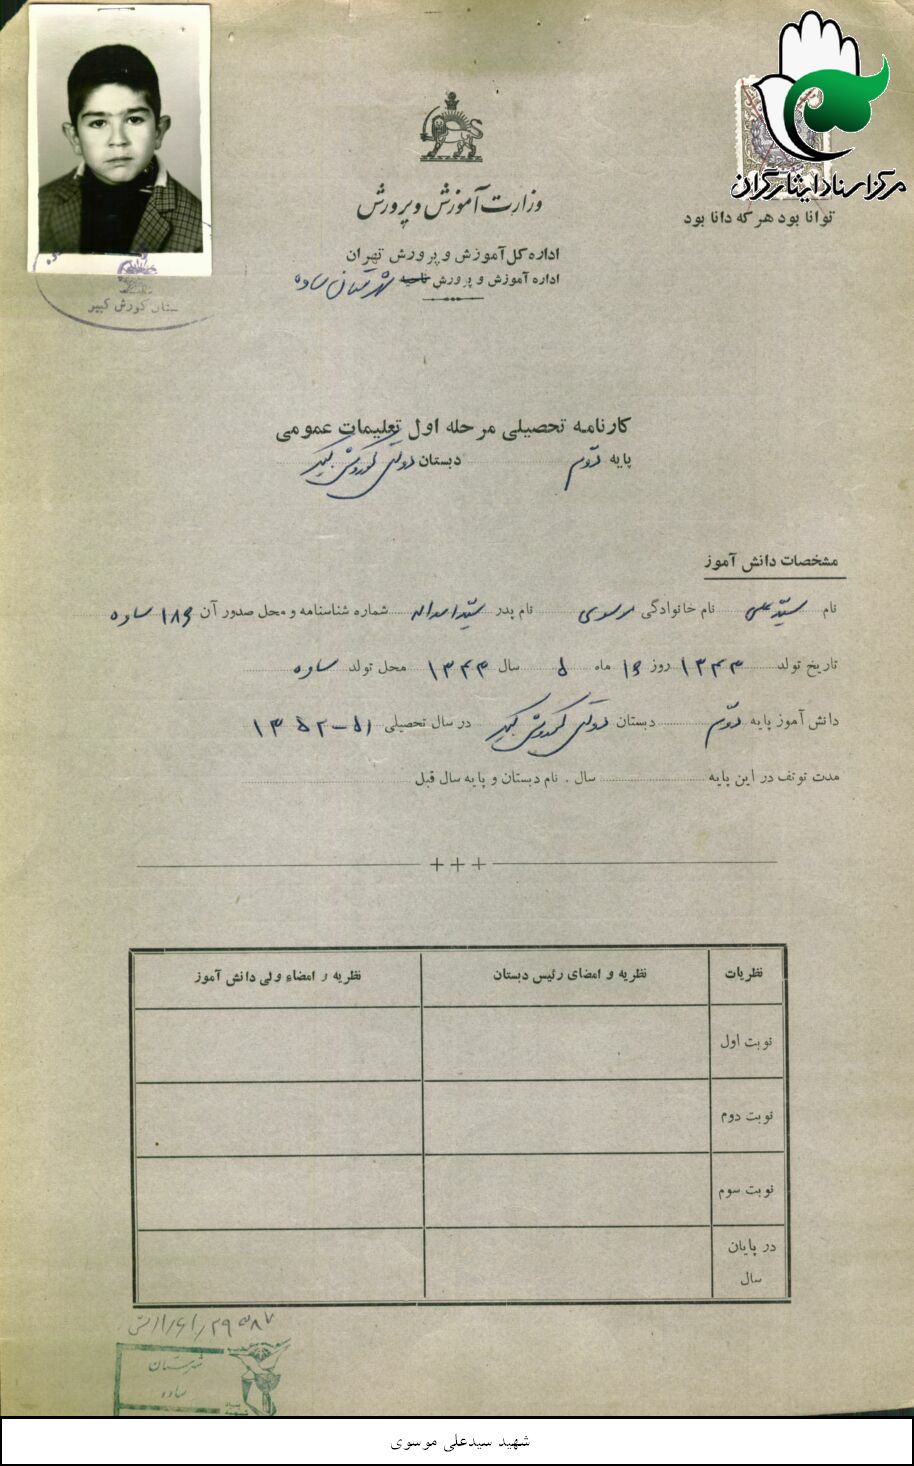 مرکز اسناد ایثارگران
توانا بود هر که دانا بود
وزارت آموزش و پرورش
اداره کل آموزش و پرورش تهران
اداره آموزش و پرورش ناحیه شهرستان ساوه
ستان کورش کبیر
کارنامه تحصیلی مرحله اول تعلیمات عمومی
پایه دوّم دبستان دولتی کوروش کبیر
مشخصات دانش آموز
نام سیّد علی نام خانوادگی موسوی نام بدر سیّد اسداله شماره شناسنامه و محل صدور آن ۱۸۶ ساوه
تاریخ تولد ۱۳۴۳ روز ۱۶ ماه ۵ سال ۱۳۴۳ محل تولد ساوه
دانش آموز پایه دوّم دبستان دولتی کوروش کبیر در سال تحصیلی ۵۱-۱۳۵۲
مدت توقف در این پایه سال . نام دبستان و پایه سال قبل
نظریات نظریه و امضای رئیس دبستان نظریه و امضاء ولی دانش آموز
نوبت اول
نوبت دوم
نوبت سوم
در پایان
سال
شهرستان
ساوه
شهید سیدعلی موسوی